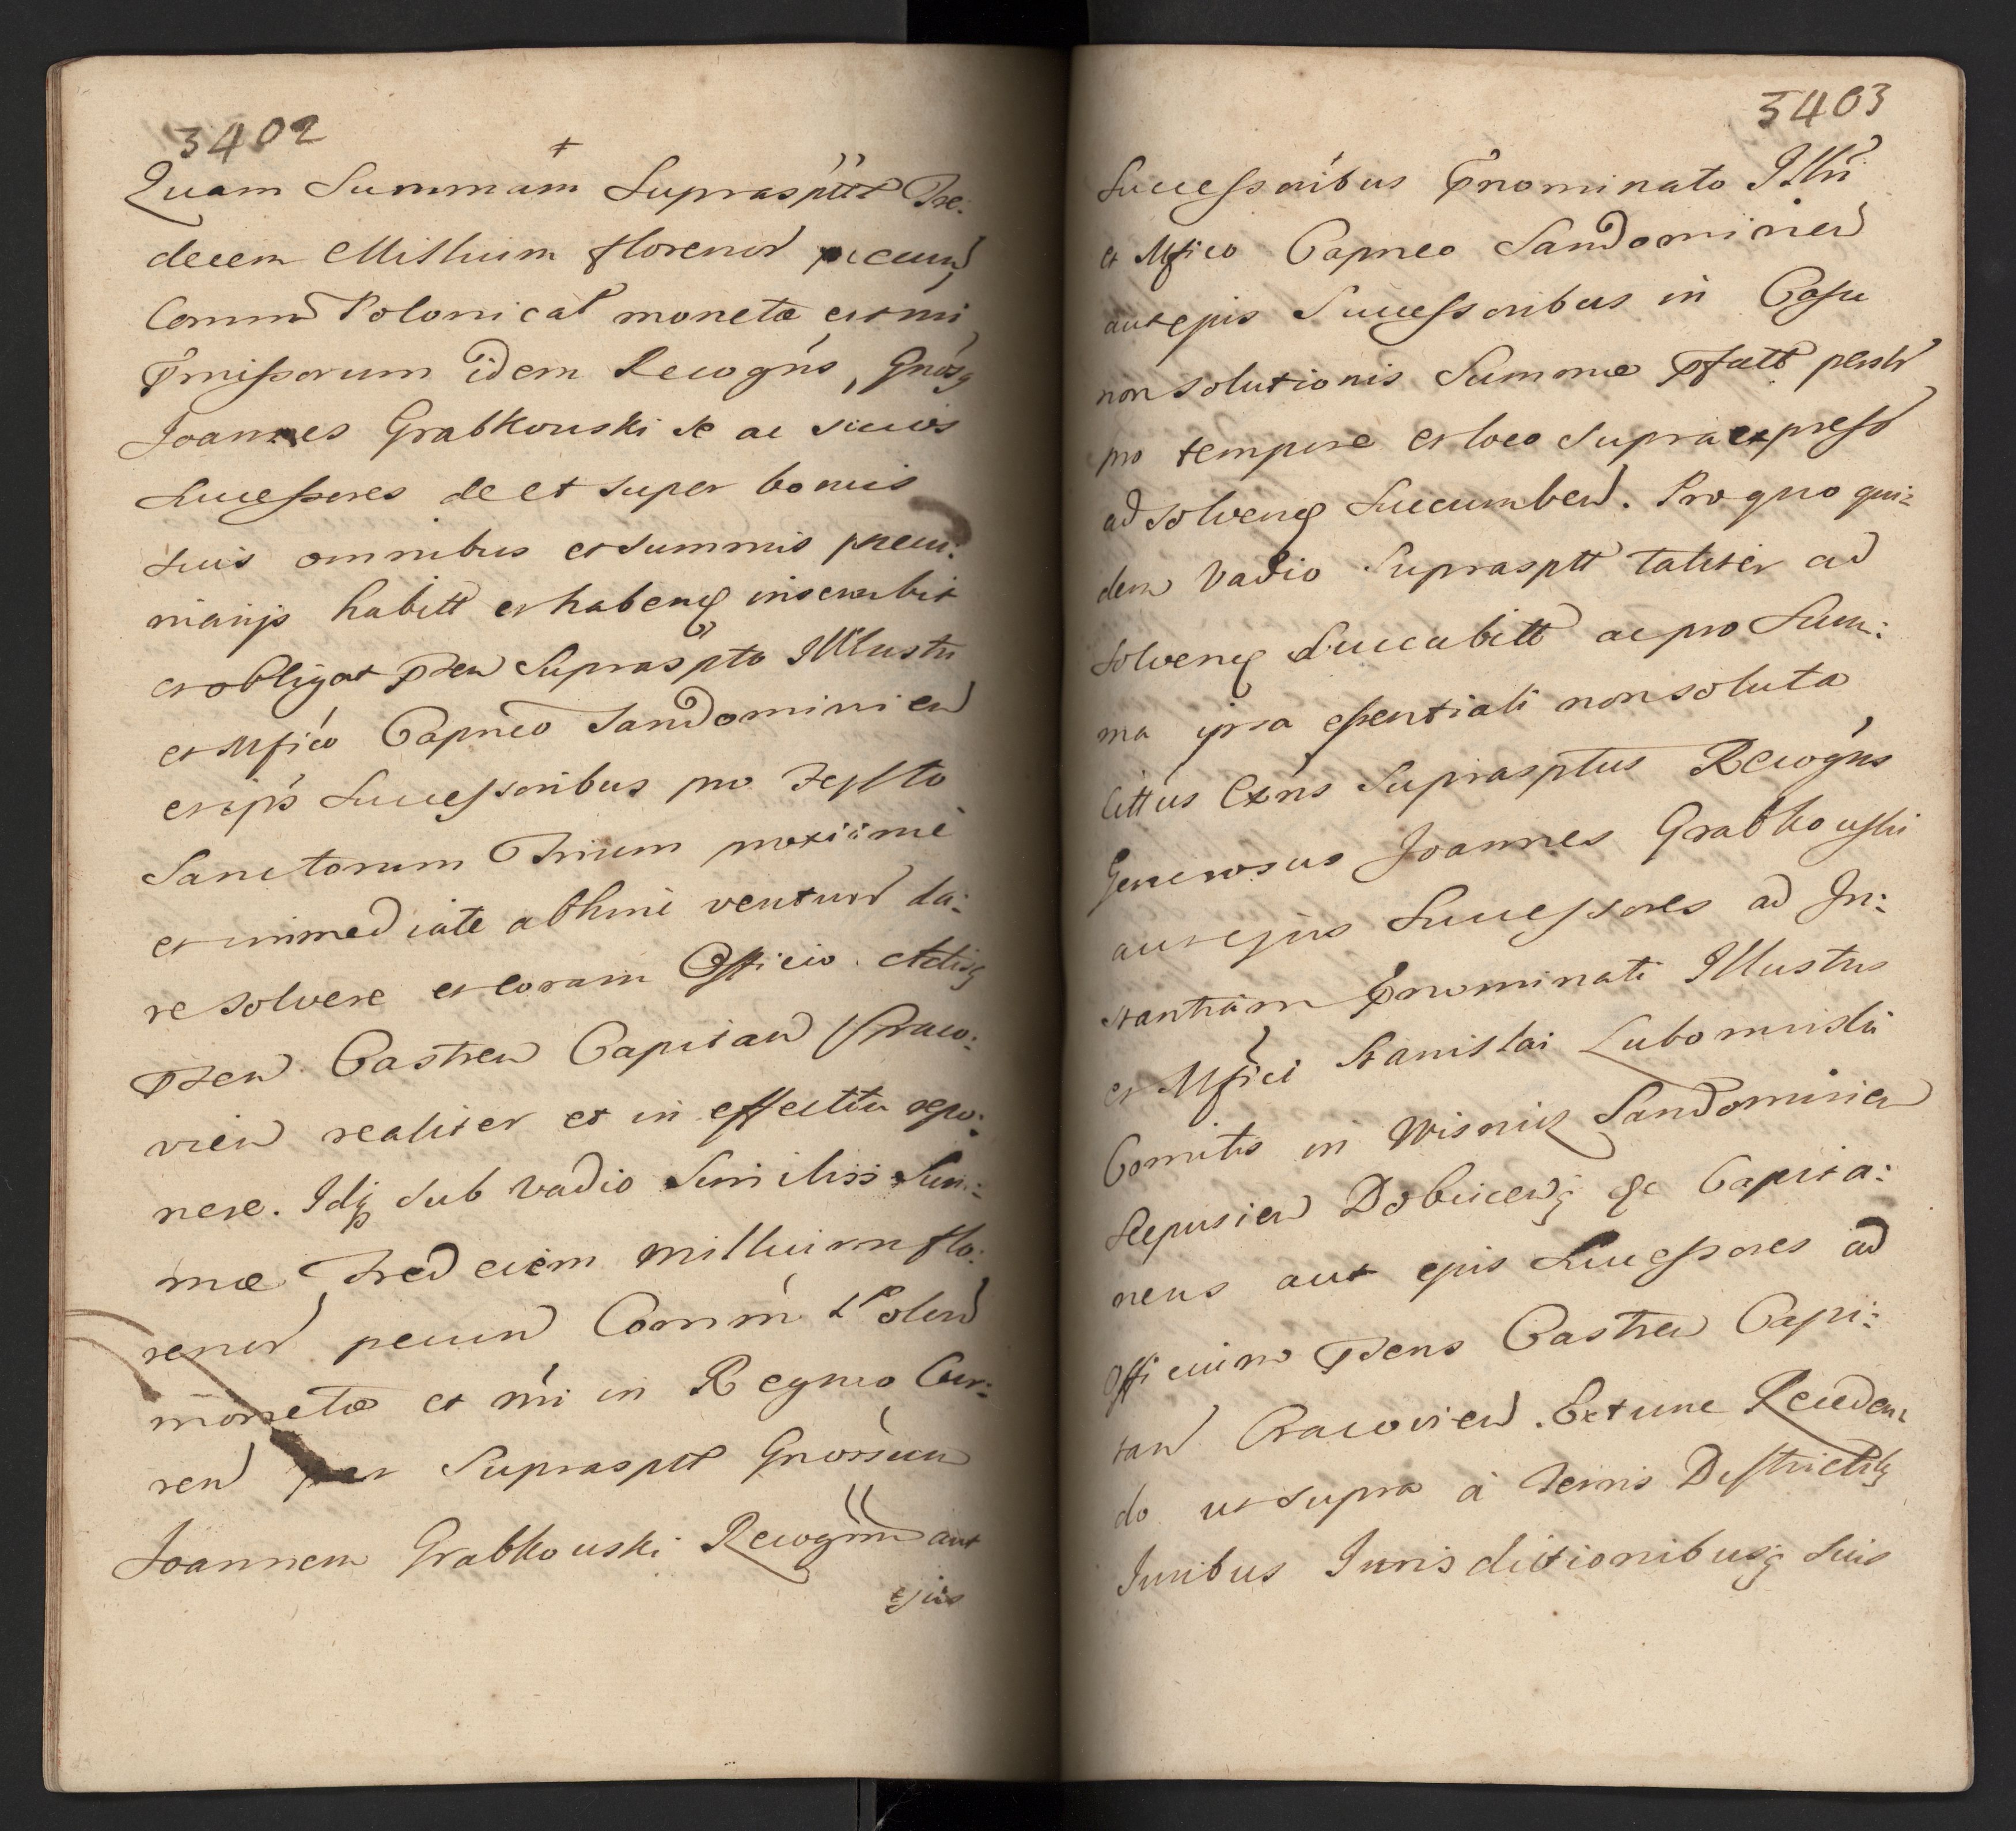 3402
Quam Summam Supraspttt Tre:
decem Millium florenor pecun
Comm Polonical monetæ et mi
Pmissorum idem Recogns, Gnosq
Joannes Grabkouski se ac suos
Successores de et super bonis
suis omnibus et summis pecu:
niarijs habitt et habeng inscribit
et obligat Pden Supraspto Illustri
et Mfico Capneo Sandominien
et ejs Successoribus pro Festo
Sanctorum Trium proxime
et immediate abhinc venturo da:
re solvere et coram Officio Actisq
Pden Castren Capitan Craco:
vien realiter et in effectu repo:
nere. Idq sub vadio Similis Sum:
mæ Tredecem millium flo:
renor pecun Comm Polon
monetæ et mi in Regno Cur:
ren per Supraspttt Gnosum
Joannem Grabkouski Recognn aut
ejus
3403
Successoribus Pnominato Illri
et Mfico Capneo Sandominien
aut ejus Successoribus in Casu
non solutionis Summæ Pfatt
pro tempore et loco supraexpresso
ad solveng Succumben. Pro quo qui:
dem Vadio Suprasptt taliter ad
solveng Succubitt ac pro Sum:
ma ipsa essentiali non soluta
Citttus Exns Suprasptus Recogns
Generosus Joannes Grabkouski
aut ejus Successores ad In:
stantiam Pnominati Illustris
et Mfici Stanislai Lubomirski
Comitis in Wisnicz Sandomirien
Scepusien Dobczcenq &c Capita:
neus aut ejus Successores ad
Officium Pdens Castren Capi:
tan Cracovien. Extunc Receden:
do ut supra à Terris Districtibq
Juribus Jurisdictionibusq suis